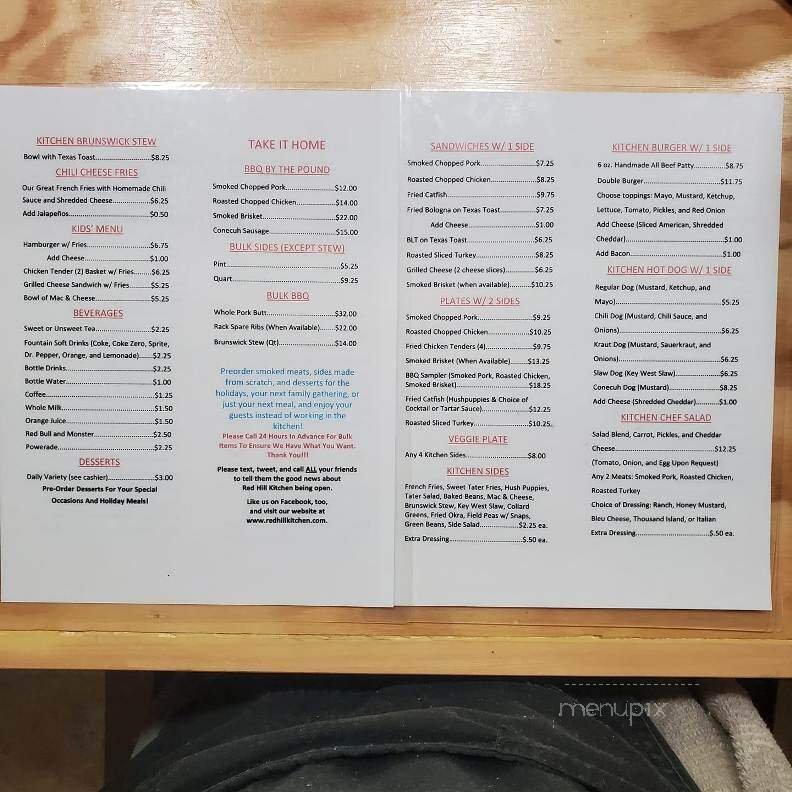 KITCHEN BRUNSWICK STEW
Bowl with Texas Toast....................$8.25
CHILI CHEESE FRIES
Our Great French Fries with Homemade Chili
Sauce and Shredded Cheese................$6.25
Add Jalapeños....................$0.50
KIDS' MENU
Hamburger w/ Fries....................$6.75
Add Cheese....................$1.00
Chicken Tender (2) Basket w/ Fries..........$6.25
Grilled Cheese Sandwich w/ Fries..........$5.25
Bowl of Mac & Cheese....................$5.25
BEVERAGES
Sweet or Unsweet Tea....................$2.25
Fountain Soft Drinks (Coke, Coke Zero, Sprite,
Dr. Pepper, Orange, and Lemonade).......$2.25
Bottle Drinks....................$2.25
Bottle Water....................$1.00
Coffee....................$1.25
Whole Milk....................$1.50
Orange Juice....................$1.50
Red Bull and Monster....................$2.50
Powerade....................$2.25
DESSERTS
Daily Variety (see cashier)....................$3.00
Pre-Order Desserts For Your Special
Occasions And Holiday Meals!
TAKE IT HOME
BBQ BY THE POUND
Smoked Chopped Pork....................$12.00
Roasted Chopped Chicken....................$14.00
Smoked Brisket....................$22.00
Conecuh Sausage....................$15.00
BULK SIDES (EXCEPT STEW)
Pint....................$5.25
Quart....................$9.25
BULK BBQ
Whole Pork Butt....................$32.00
Rack Spare Ribs (When Available).......$22.00
Brunswick Stew (Qt)....................$14.00
Preorder smoked meats, sides made
from scratch, and desserts for the
holidays, your next family gathering, or
just your next meal, and enjoy your
guests instead of working in the
kitchen!
Please Call 24 Hours In Advance For Bulk
Items To Ensure We Have What You Want.
Thank You!!!
Please text, tweet, and call ALL your friends
to tell them the good news about
Red Hill Kitchen being open.
Like us on Facebook, too,
and visit our website at
www.redhillkitchen.com.
SANDWICHES W/ 1 SIDE
Smoked Chopped Pork....................$7.25
Roasted Chopped Chicken....................$8.25
Fried Catfish....................$9.75
Fried Bologna on Texas Toast..........$7.25
Add Cheese....................$1.00
BLT on Texas Toast....................$6.25
Roasted Sliced Turkey....................$8.25
Grilled Cheese (2 cheese slices)..........$6.25
Smoked Brisket (when available)..........$10.25
PLATES W/ 2 SIDES
Smoked Chopped Pork....................$9.25
Roasted Chopped Chicken....................$10.25
Fried Chicken Tenders (4)....................$9.75
Smoked Brisket (When Available)..........$13.25
BBQ Sampler (Smoked Pork, Roasted Chicken,
Smoked Brisket)....................$18.25
Fried Catfish (Hushpuppies & Choice of
Cocktail or Tartar Sauce)....................$12.25
Roasted Sliced Turkey....................$10.25.
VEGGIE PLATE
Any 4 Kitchen Sides....................$8.00
KITCHEN SIDES
French Fries, Sweet Tater Fries, Hush Puppies,
Tater Salad, Baked Beans, Mac & Cheese,
Brunswick Stew, Key West Slaw, Collard
Greens, Fried Okra, Field Peas w/ Snaps,
Green Beans, Side Salad....................$2.25 ea.
Extra Dressing....................$.50 ea.
KITCHEN BURGER W/ 1 SIDE
6 oz. Handmade All Beef Patty..........$8.75
Double Burger....................$11.75
Choose toppings: Mayo, Mustard, Ketchup,
Lettuce, Tomato, Pickles, and Red Onion
Add Cheese (Sliced American, Shredded
Cheddar)....................$1.00
Add Bacon....................$1.00
KITCHEN HOT DOG W/ 1 SIDE
Regular Dog (Mustard, Ketchup, and
Mayo)....................$5.25
Chili Dog (Mustard, Chili Sauce, and
Onions)....................$6.25
Kraut Dog (Mustard, Sauerkraut, and
Onions)....................$6.25
Slaw Dog (Key West Slaw)....................$6.25
Conecuh Dog (Mustard)....................$8.25
Add Cheese (Shredded Cheddar)..........$1.00
KITCHEN CHEF SALAD
Salad Blend, Carrot, Pickles, and Cheddar
Cheese....................$12.25
(Tomato, Onion, and Egg Upon Request)
Any 2 Meats: Smoked Pork, Roasted Chicken,
Roasted Turkey
Choice of Dressing: Ranch, Honey Mustard,
Bleu Cheese, Thousand Island, or Italian
Extra Dressing....................$.50 ea.
menupix